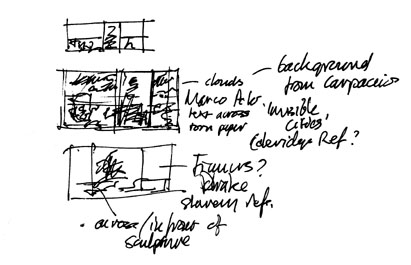 clouds
background
from Carpaccio
Marco Polo
text across
torn paper
Invisible
Cities,
Coleridge Ref?
Figures?
slavery refs.
across/in front of
sculpture